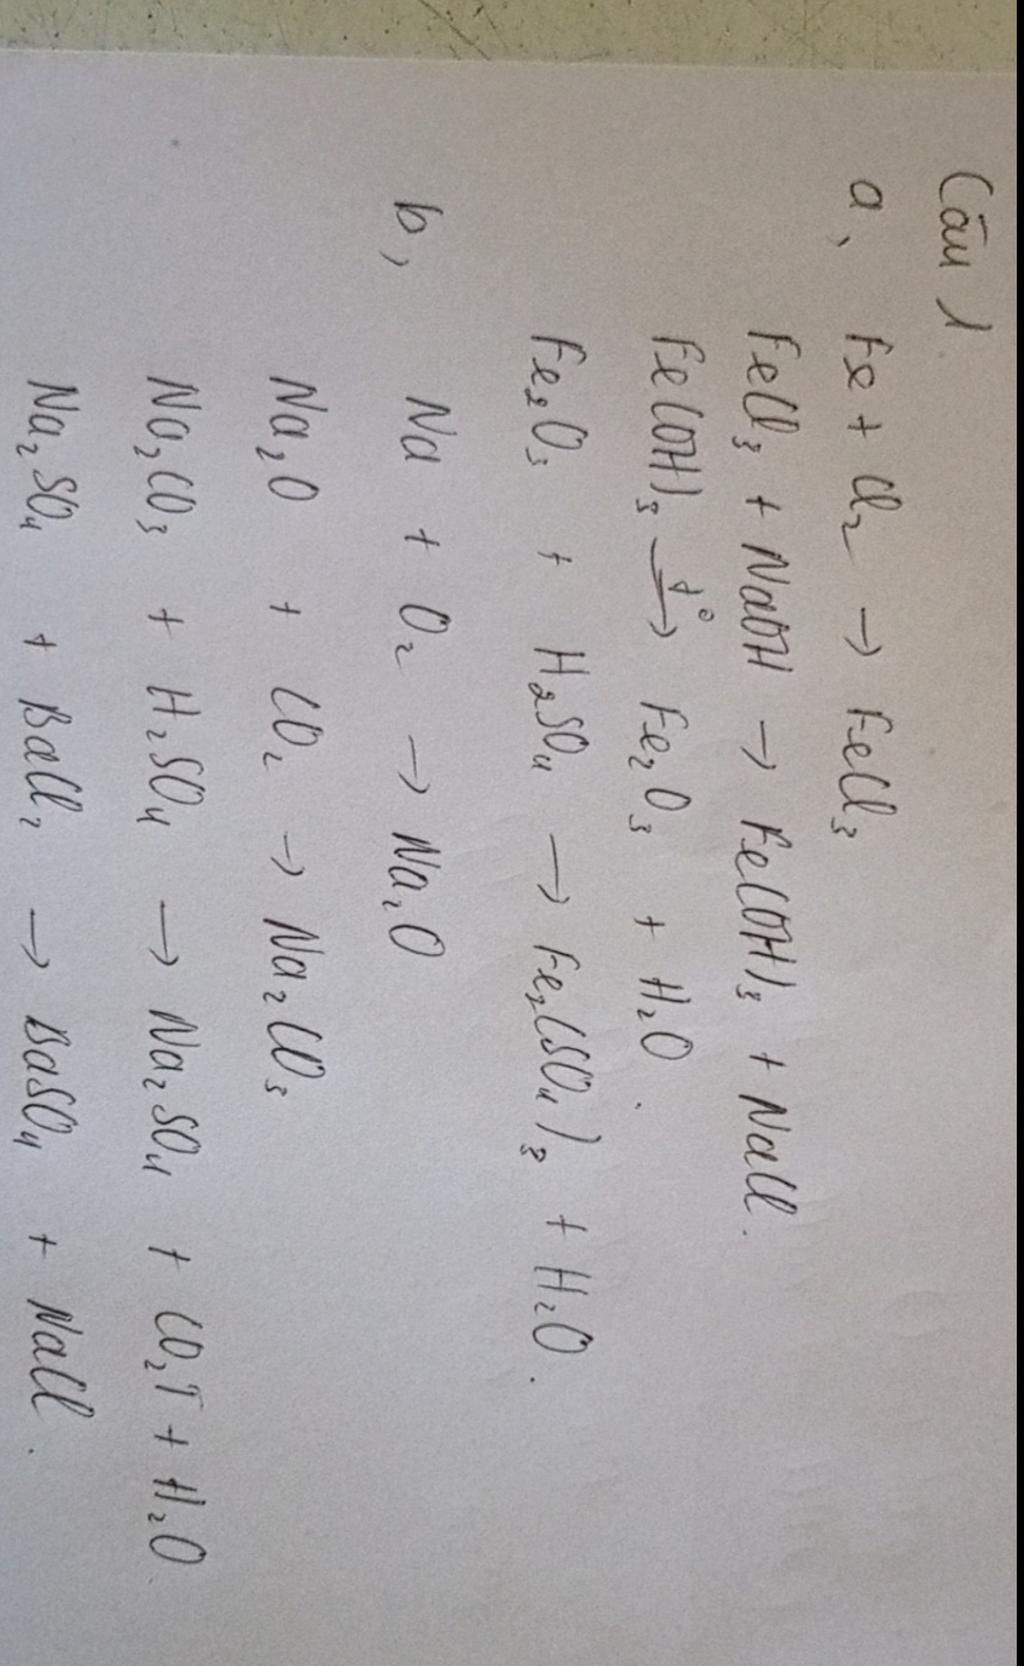 Câu 1
a, Fe + Cl₂ → FeCl₃
FeCl₃ + NaOH → Fe(OH)₃ + NaCl.
Fe(OH)₃ t° → Fe₂O₃ + H₂O.
Fe₂O₃ + H₂SO₄ → Fe₂(SO₄)₃ + H₂O.
b, Na + O₂ → Na₂O
Na₂O + CO₂ → Na₂CO₃
Na₂CO₃ + H₂SO₄ → Na₂SO₄ + CO₂↑ + H₂O.
Na₂SO₄ + BaCl₂ → BaSO₄ + NaCl.